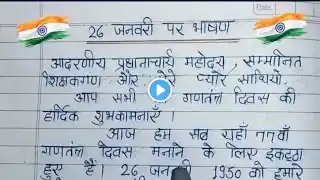 26 जनवरी पर भाषण
आदरणीय प्रधानाचार्य महोदय, सम्मानित
शिक्षकगण और मेरे प्यारे साथियों,
आप सभी को गणतंत्र दिवस की
हार्दिक शुभकामनाएँ।
आज हम सब यहाँ 77वाँ
गणतंत्र दिवस मनाने के लिए इकट्ठा
हुए हैं। 26 जनवरी 1950 को हमारे